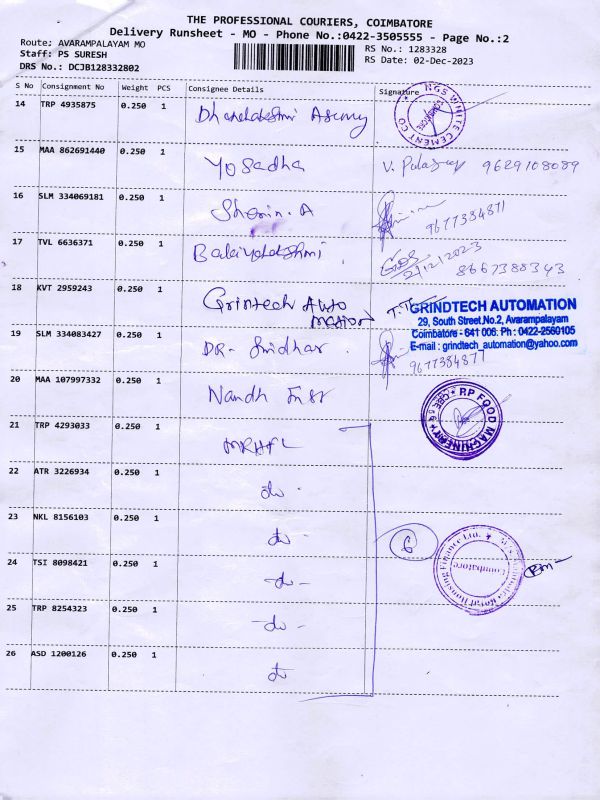 THE PROFESSIONAL COURIERS, COIMBATORE
Delivery Runsheet - MO - Phone No.:0422-3505555 - Page No.:2
Route: AVARAMPALAYAM MO
Staff: PS SURESH
DRS No.: DCJB128332802
RS No.: 1283328
RS Date: 02-Dec-2023
S No Consignment No Weight PCS Consignee Details Signature
14 TRP 4935875 0.250 1
NGS WHITE CEMENT CO
15 MAA 862691440 0.250 1 Yosadha 9629108089
16 SLM 334069181 0.250 1 Sherin. A 9677384871
17 TVL 6636371 0.250 1 2/12/2023 8667388343
18 KVT 2959243 0.250 1 Grintech Auto
mation
GRINDTECH AUTOMATION
29, South Street.No.2, Avarampalayam
Coimbatore - 641 006. Ph : 0422-2560105
E-mail : grindtech_automation@yahoo.com
19 SLM 334083427 0.250 1 DR- Sridhar 9677384877
20 MAA 107997332 0.250 1 Nandh
RP FOOD MACHINERY
21 TRP 4293033 0.250 1 MRHFL
22 ATR 3226934 0.250 1 do -
23 NKL 8156103 0.250 1 do - 6
24 TSI 8098421 0.250 1 - do -
Rural Housing Finance Ltd.
Coimbatore
25 TRP 8254323 0.250 1 - do -
26 ASD 1200126 0.250 1 do